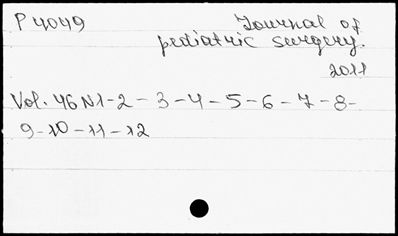 P 4049 Journal of
pediatric surgery.
2011
Vol. 46 N1-2-3-4-5-6-7-8-
9-10-11-12